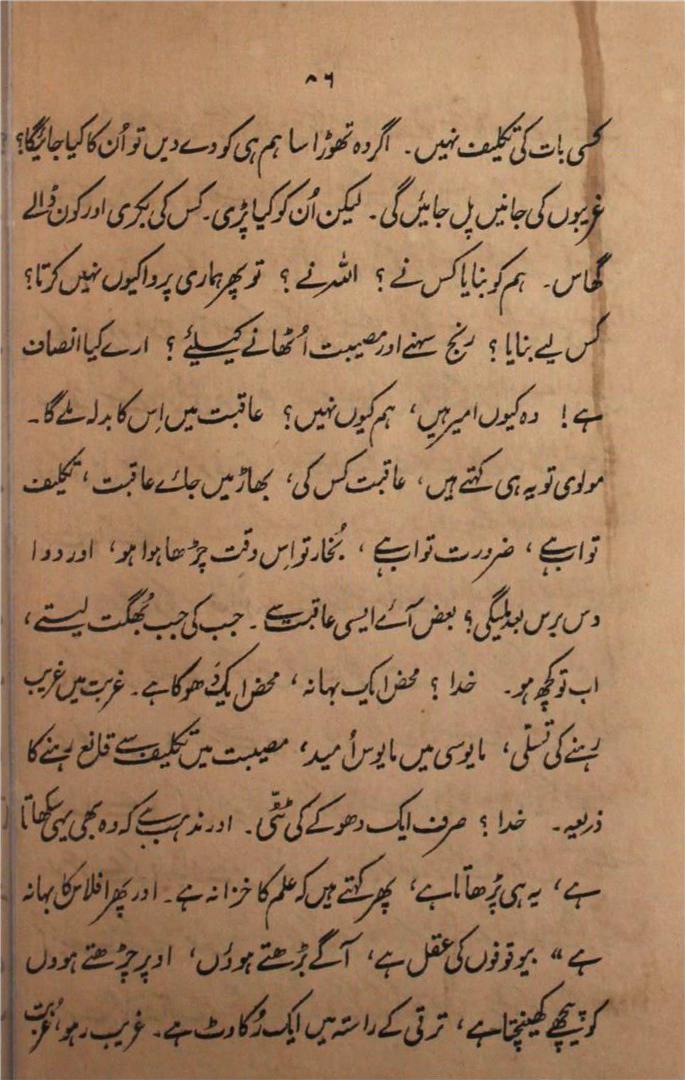 ۸۶
کسی بات کی تکلیف نہیں۔ اگر وہ تھوڑا سا ہم ہی کو دے دیں تو اُن کا کیا جائیگا؟
غریبوں کی جانیں پل جائیں گی۔ لیکن اُن کو کیا پڑی۔ کس کی بکری اور کون ڈالے
گھاس۔ ہم کو بنایا کس نے؟ اللہ نے؟ تو پھر ہماری پروا کیوں نہیں کرتا؟
کس لیے بنایا؟ رنج سہنے اور مصیبت اُٹھانے کیلئے؟ ارے کیا انصاف
ہے! وہ کیوں امیر ہیں، ہم کیوں نہیں؟ عاقبت میں اِس کا بدلہ ملے گا۔
مولوی تو یہ ہی کہتے ہیں، عاقبت کس کی، بھاڑ میں جائے عاقبت، تکلیف
تو اب ہے، ضرورت تو اب ہے، بُخار تو اِس وقت چڑھا ہوا ہو، اور دوا
دس برس بعد ملیگی؟ بعض آئے ایسی عاقبت سے۔ جب کی جب بھُگت لیتے،
اب تو کچھ ہو۔ خدا؟ محض ایک بہانہ، محض ایک دَھوکا ہے۔ غربت میں غریب
رہنے کی تسلّی، مایوسی میں مایوس اُمید، مصیبت میں تکلیف سے قانع رہنے کا
ذریعہ۔ خدا؟ صرف ایک دھوکے کی ٹٹّی۔ اور مذہب ہے کہ وہ بھی یہی سکھاتا
ہے، یہ ہی پڑھاتا ہے، پھر کہتے ہیں کہ علم کا خزانہ ہے۔ اور پھر افلاس کا بہانہ
ہے“ بیوقوفوں کی عقل ہے، آگے بڑھتے ہوؤں، اوپر چڑھتے ہووں
کو پیچھے کھینچتا ہے، ترقی کے راستہ میں ایک رُکاوٹ ہے۔ غریب رہو، غُربت